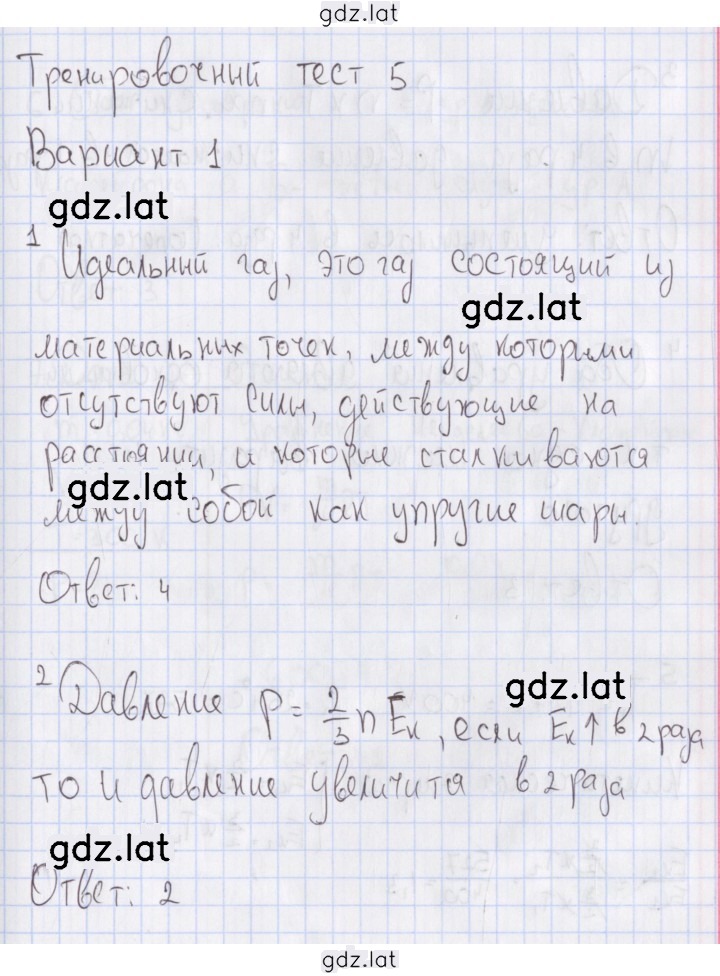 gdz.lat
Тренировочный тест 5
Вариант 1
gdz.lat
1 Идеальный газ, это газ состоящий из
gdz.lat
материальных точек, между которыми
отсутствуют силы, действующие на
расстоянии, и которые сталкиваются
gdz.lat
между собой как упругие шары.
Ответ: 4
gdz.lat
2 Давление p = 2/3 n Ēк, если Ēк ↑ в 2 раза
то и давление увеличится в 2 раза
gdz.lat
Ответ: 2
gdz.lat